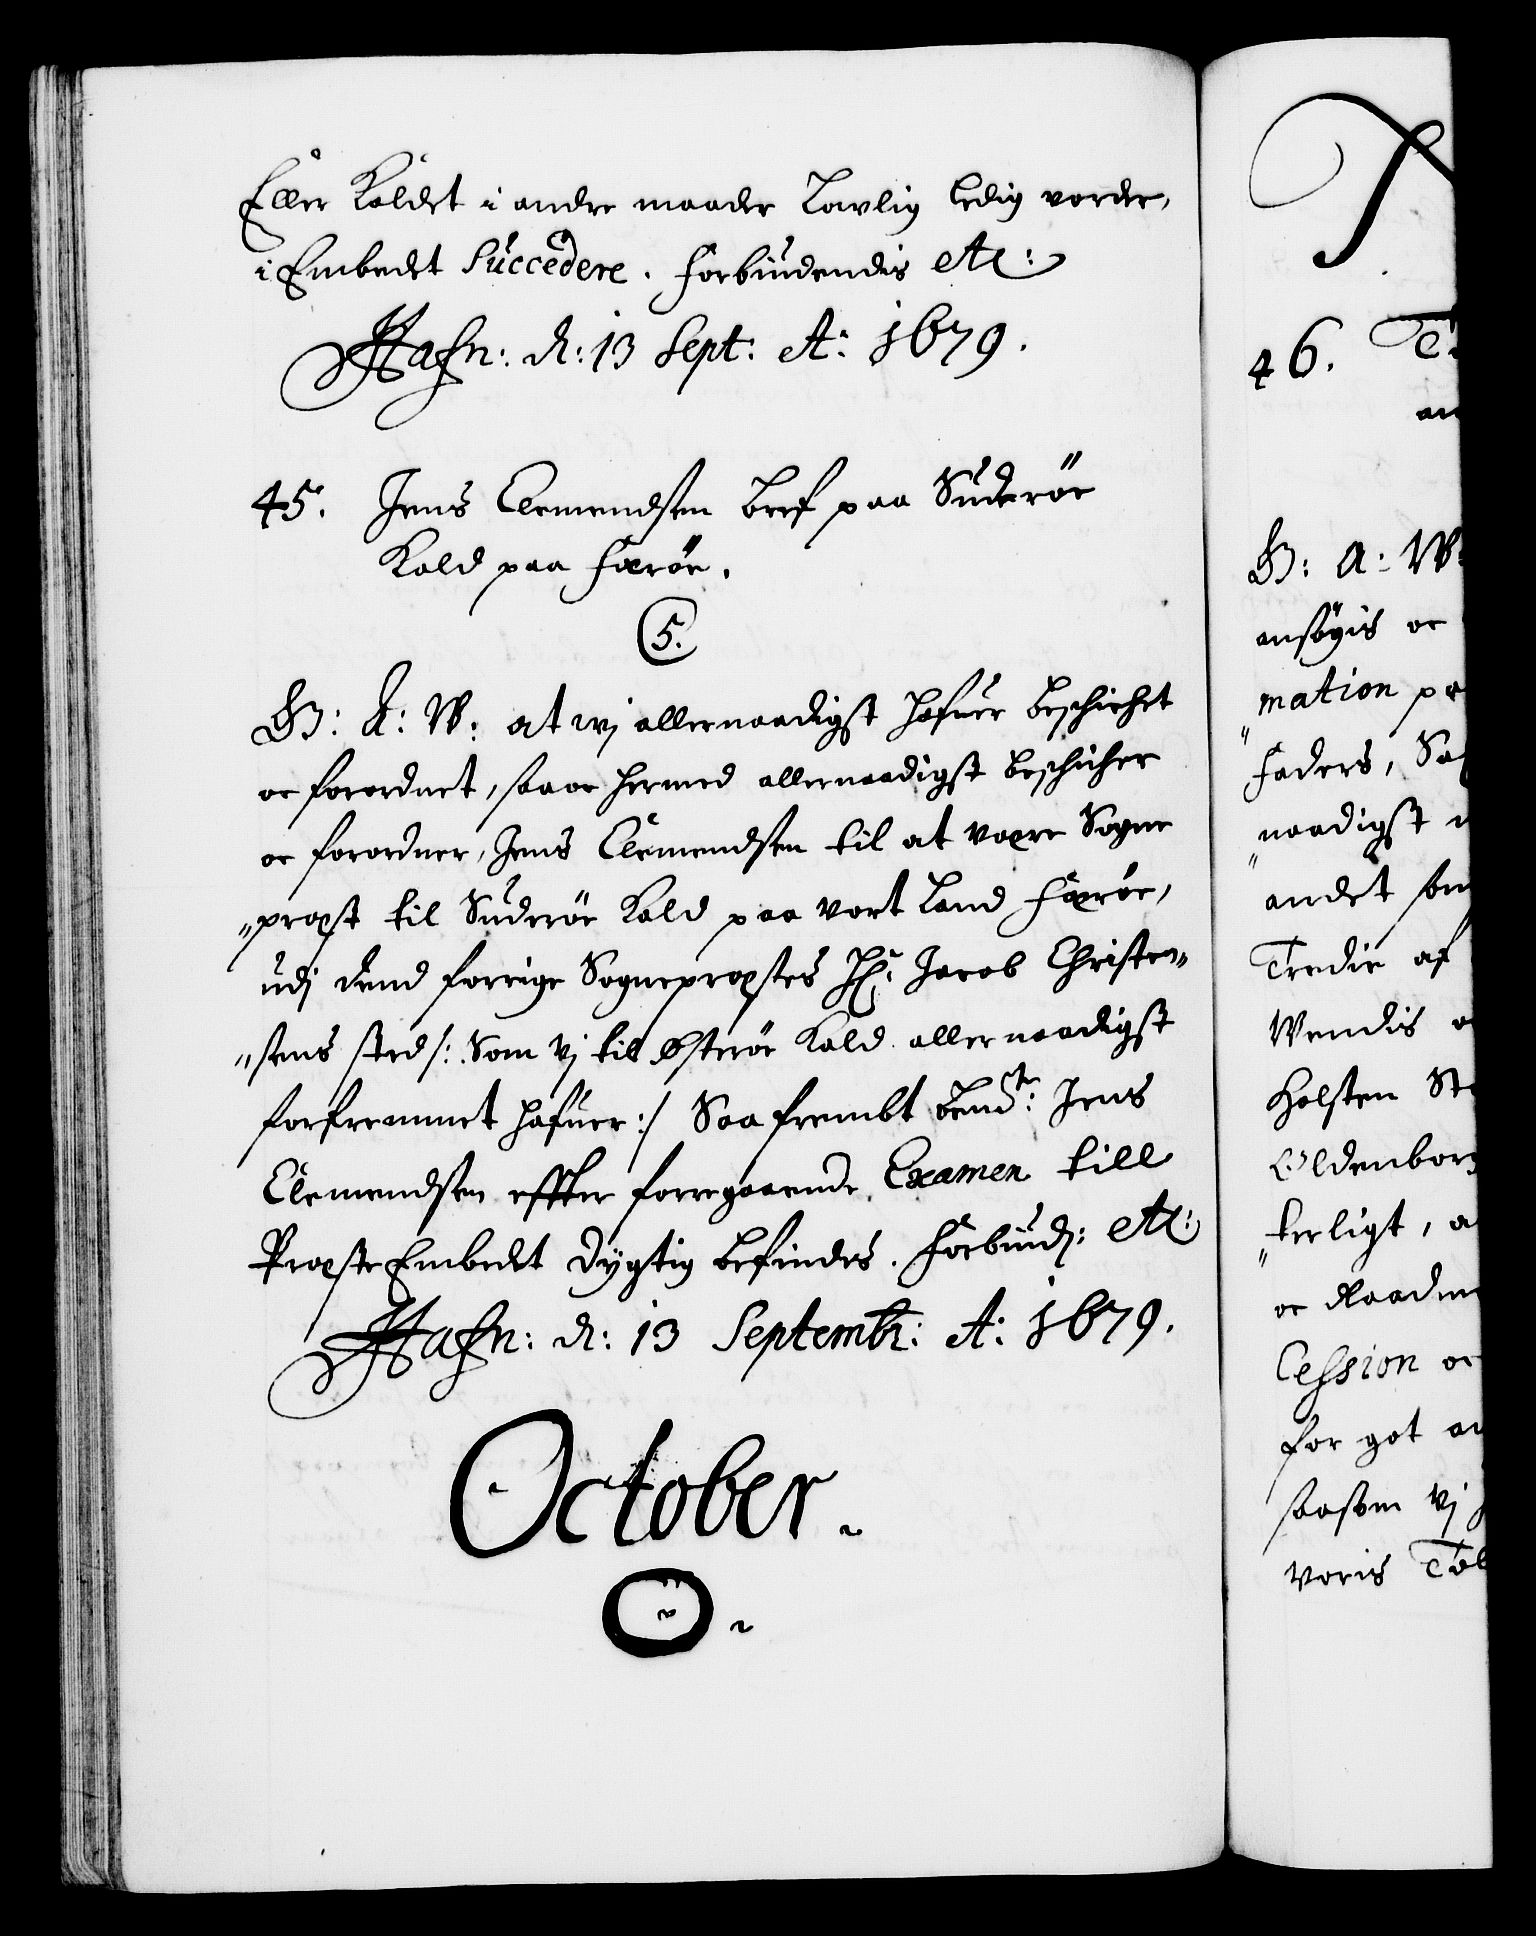 Eller Kaldet i andre maader Lovlig Ledig vorder,
i Embedet Succedere. Forbiudendis etc:
Hafn: d: 13 Sept: A: 1679.
45. Jens Clemendsen bref paa Suderöe
Kald paa Færöe.
5.
G: A: W: at wj allernaadigst hafuer beschichet
oc forordnet, saa oc hermed allernaadigst beschicher
oc forordner, Jens Clemendsen til at være Sogne
„præst til Suderöe Kald paa vort Land Færöe,
udj dend forrige Sognepræstes Hr: Jacob Christen„
„sens sted/: Som vj til Østeröe Kald allernaadigst
forfremmet hafuer:/ Saa frembt bemte: Jens
Clemendsen effter forregaaende Examen till
Præste Embedet dygtig befindes. Forbiud: etc:
Hafn: d: 13 Septembr: A: 1679.
October.
O.
46.
G: A: W:
ansögis oc
mation
„Faders,
„naadigst
andet som
Tredie af
Wendis
Holsten
Oldenborg
„kerligt,
oc
Cession oc
for got
saasom vj
voris